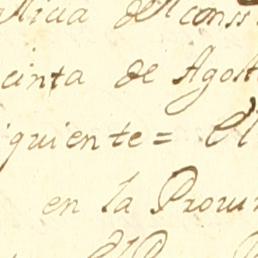 alicia del conss
cinta de Agost
iguiente = El
en la Provin